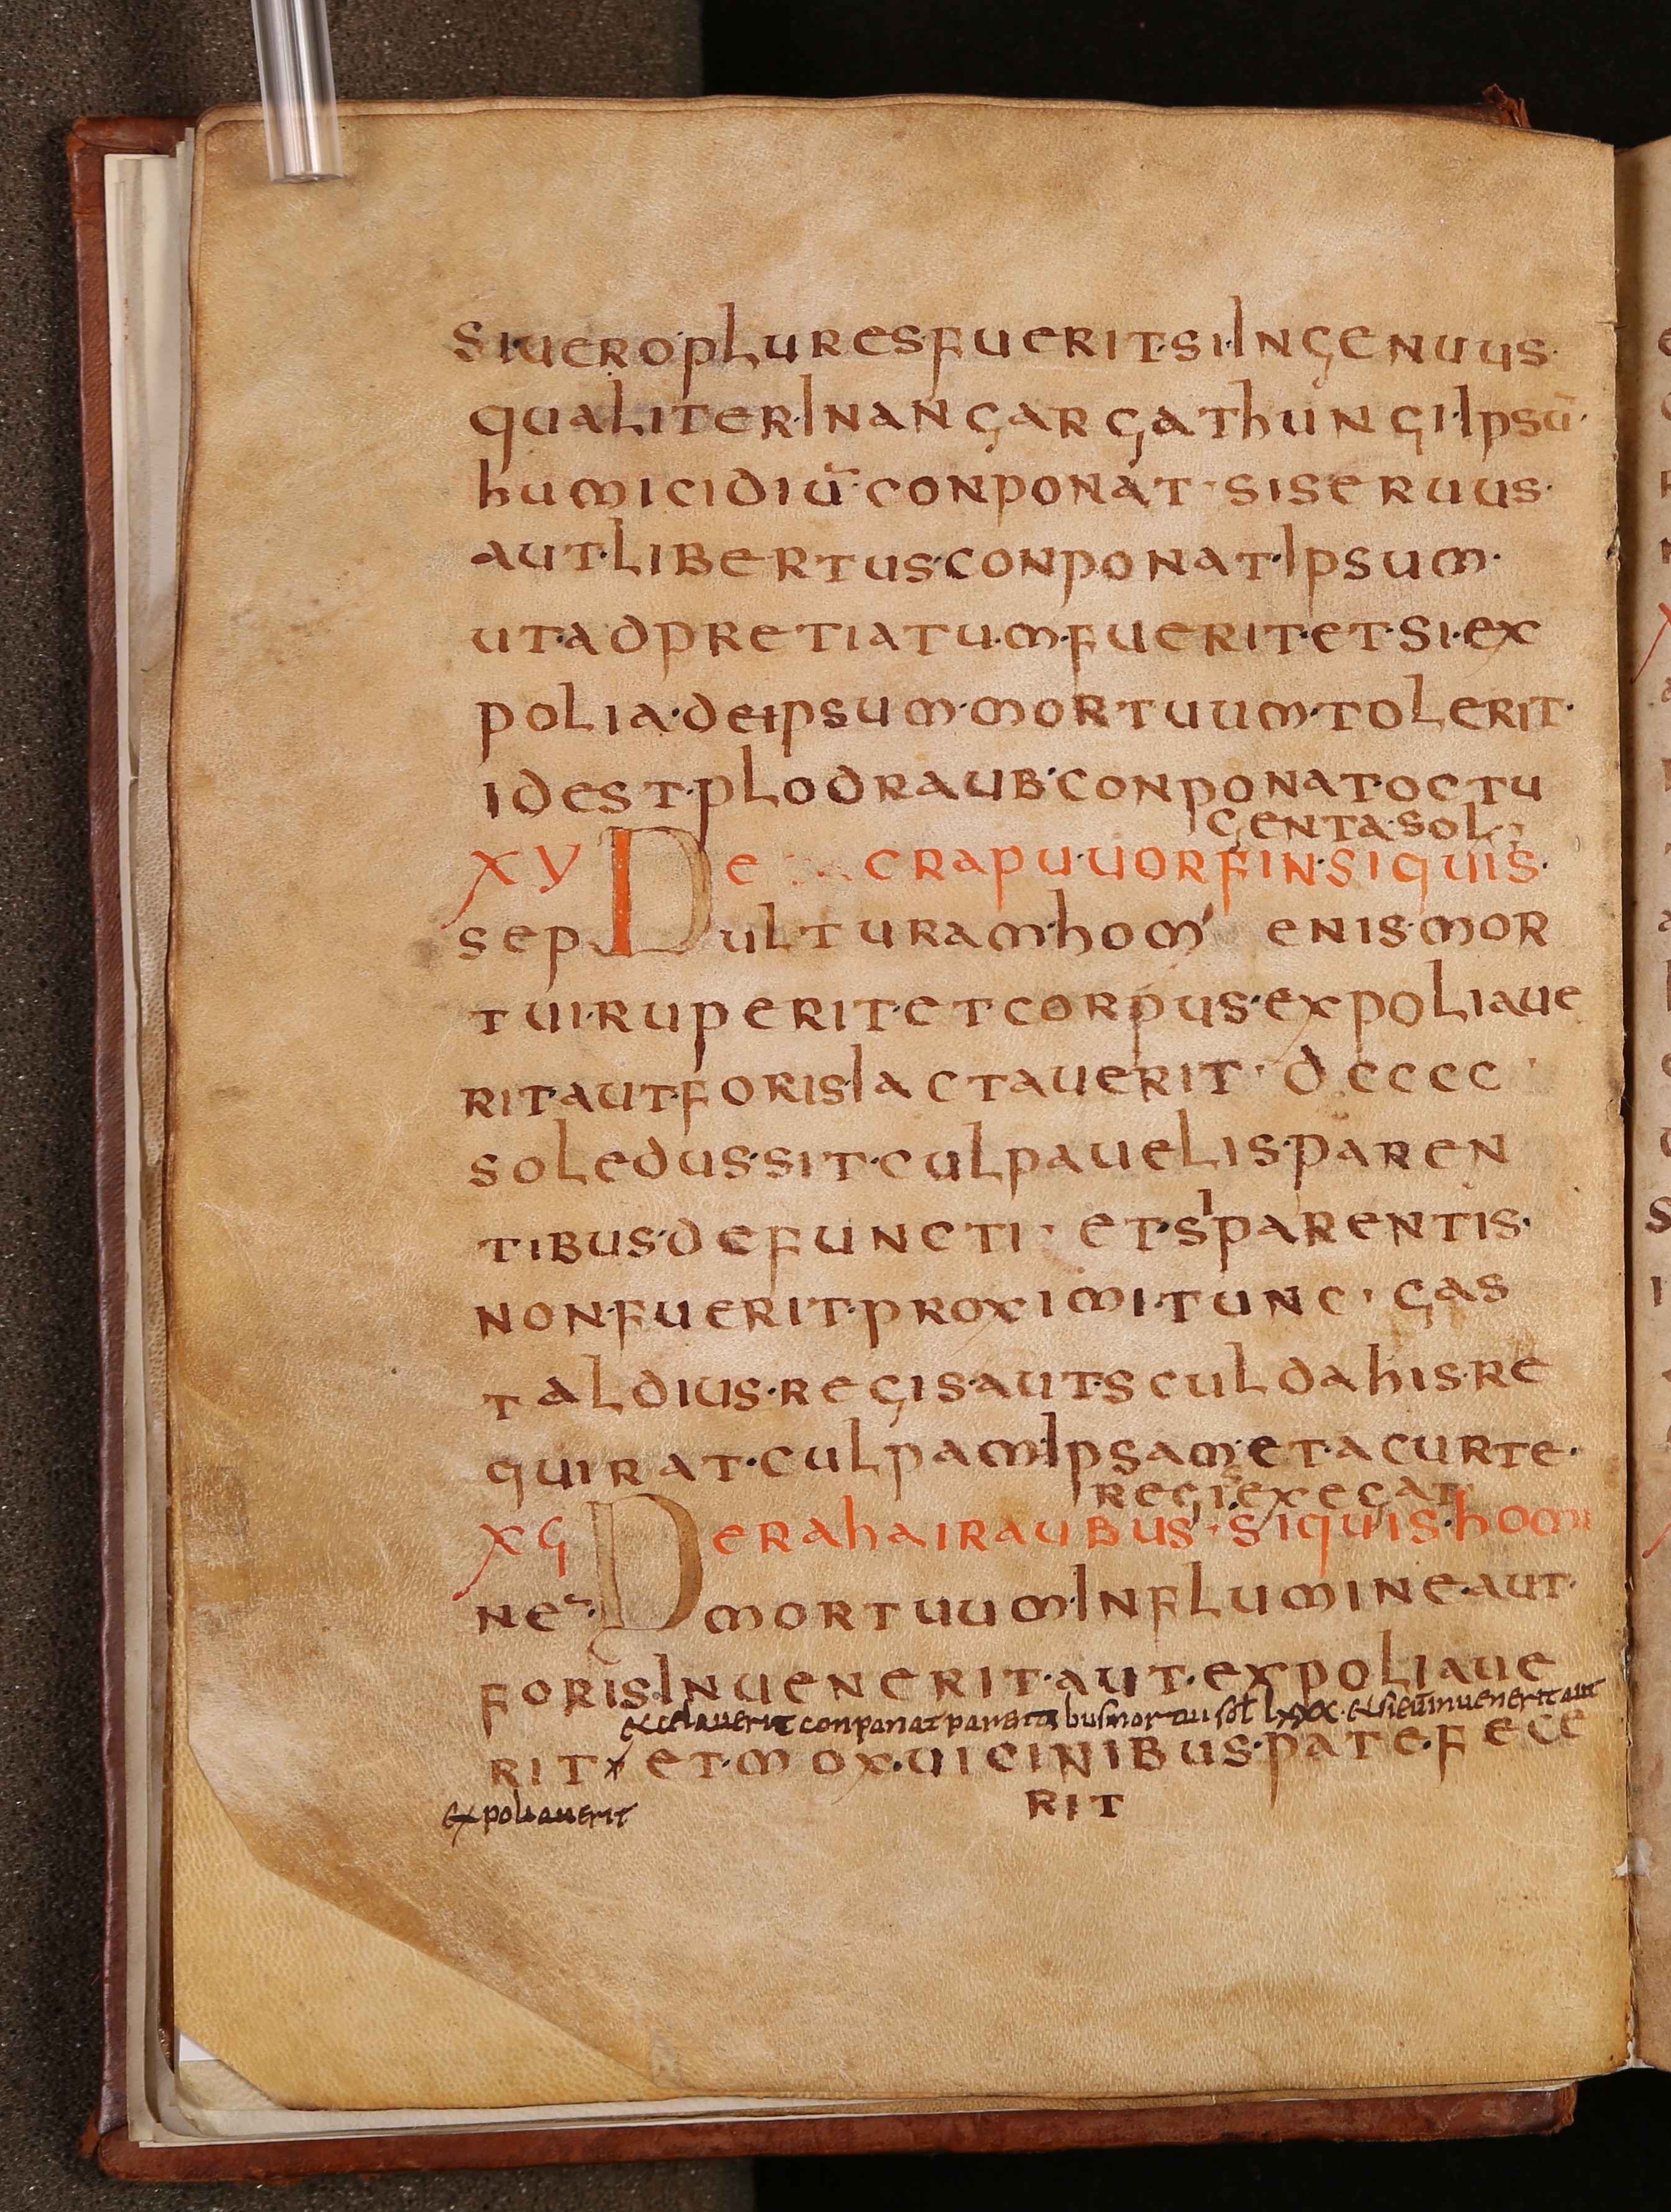 siuero·plures·fuerit·si·ingenuus·
qualiter·in angargathungi·ipsū·
humicidiū·conponat·si seruus·
aut·libertus·conponat·ipsum·
ut·adpretiatum·fuerit·et·si·ex
polia·de ipsum·mortuum·tolerit·
idest·plodraub·conponat·octu
genta·sol·
xv De crapuuorfin·siquis·
sepulturam·hom enis·mor
tui·ruperit·et corpus·expoliaue
rit·aut·foris iactauerit·dcccc·
soledus·sit·culpauelis·paren
tibus·defuncti· et·si parentis·
non·fuerit·proximi·tunc· gas
taldius·regis·aut·sculdahis·re
quirat·culpam·ipsam·et·a curte·
regi·exegat
xϛ De rahairaubus·siquis·homi
ne mortuum·in flumine·aut·
foris·inuenerit·aut·expoliaue
et celauerit conponat parentibus mortui sol lxxx· et si eū inuenerit aut
rit et·mox·uicinibus·patefece
expoliauerit
rit